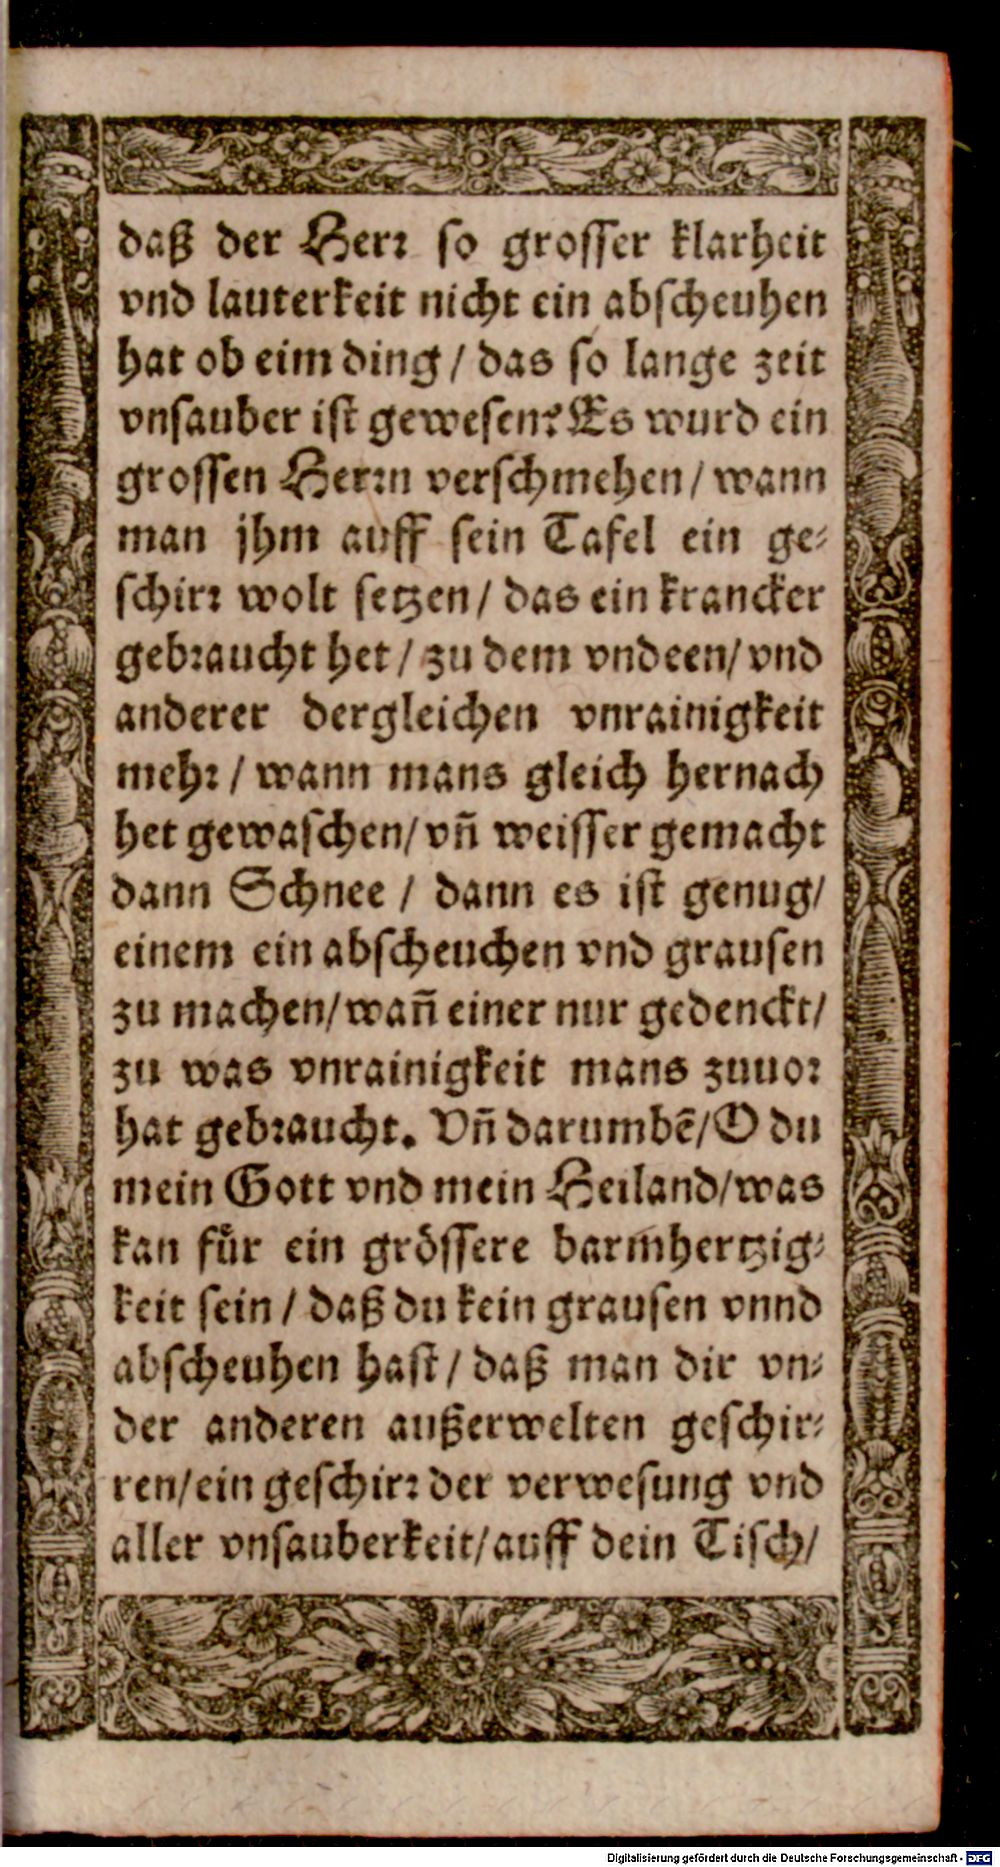 daß der Herr so grosser klarheit
vnd lauterkeit nicht ein abscheuhen
hat ob eim ding / das so lange zeit
vnsauber ist gewesen? Es wurd ein
grossen Herrn verschmehen / wann
man jhm auff sein Tafel ein ge-
schirr wolt setzen / das ein krancker
gebraucht het / zu dem vndeen / vnd
anderer dergleichen vnrainigkeit
mehr / wann mans gleich hernach
het gewaschen / vñ weisser gemacht
dann Schnee / dann es ist genug /
einem ein abscheuchen vnd grausen
zu machen / wañ einer nur gedenckt /
zu was vnrainigkeit mans zuuor
hat gebraucht. Vñ darumbẽ / O du
mein Gott vnd mein Heiland / was
kan für ein grössere barm̃hertzig-
keit sein / daß du kein grausen vnnd
abscheuhen hast / daß man dir vn-
der anderen außerwelten geschir-
ren / ein geschirr der verwesung vnd
aller vnsauberkeit / auff dein Tisch /
Digitalisierung gefördert durch die Deutsche Forschungsgemeinschaft - DFG